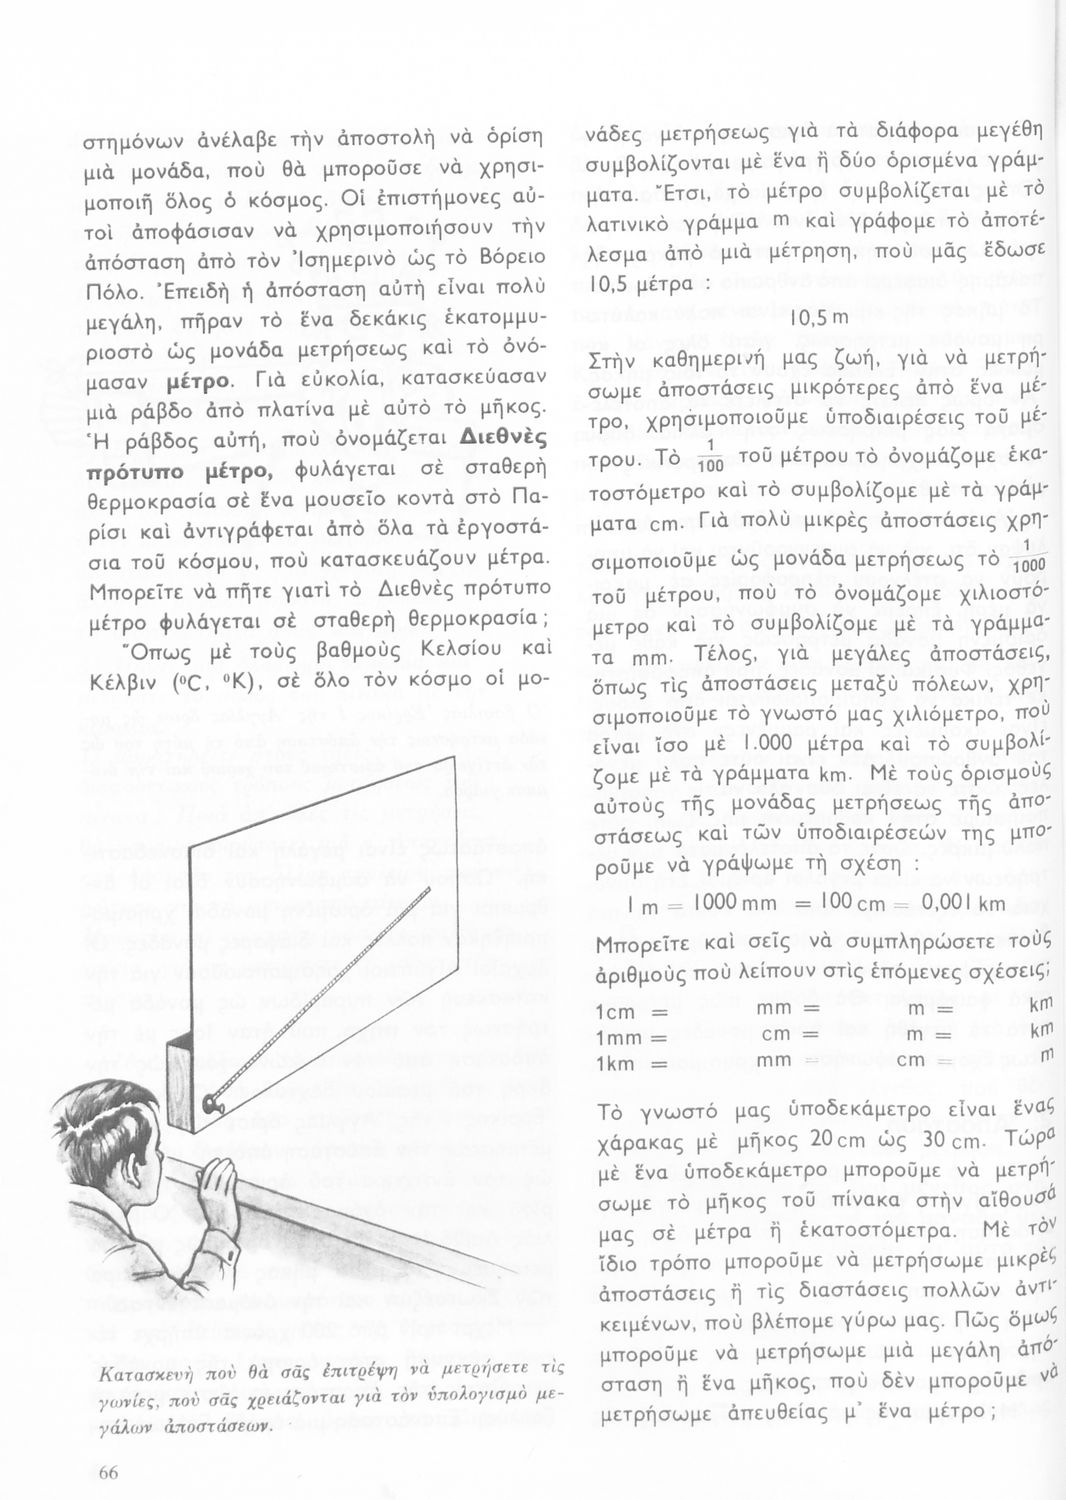 στημόνων ἀνέλαβε τὴν ἀποστολὴ νὰ ὁρίση
μιὰ μονάδα, ποὺ θὰ μποροῦσε νὰ χρησι-
μοποιῆ ὅλος ὁ κόσμος. Οἱ ἐπιστήμονες αὐ-
τοὶ ἀποφάσισαν νὰ χρησιμοποιήσουν τὴν
ἀπόσταση ἀπὸ τὸν Ἰσημερινὸ ὡς τὸ Βόρειο
Πόλο. Ἐπειδὴ ἡ ἀπόσταση αὐτὴ εἶναι πολὺ
μεγάλη, πῆραν τὸ ἕνα δεκάκις ἑκατομμυ-
ριοστὸ ὡς μονάδα μετρήσεως καὶ τὸ ὀνό-
μασαν μέτρο. Γιὰ εὐκολία, κατασκεύασαν
μιὰ ράβδο ἀπὸ πλατίνα μὲ αὐτὸ τὸ μῆκος.
Ἡ ράβδος αὐτή, ποὺ ὀνομάζεται Διεθνὲς
πρότυπο μέτρο, φυλάγεται σὲ σταθερὴ
θερμοκρασία σὲ ἕνα μουσεῖο κοντὰ στὸ Πα-
ρίσι καὶ ἀντιγράφεται ἀπὸ ὅλα τὰ ἐργοστά-
σια τοῦ κόσμου, ποὺ κατασκευάζουν μέτρα.
Μπορεῖτε νὰ πῆτε γιατὶ τὸ Διεθνὲς πρότυπο
μέτρο φυλάγεται σὲ σταθερὴ θερμοκρασία;
Ὅπως μὲ τοὺς βαθμοὺς Κελσίου καὶ
Κέλβιν (°C, °K), σὲ ὅλο τὸν κόσμο οἱ μο-
Κατασκευὴ ποὺ θὰ σᾶς ἐπιτρέψη νὰ μετρήσετε τὶς
γωνίες, ποὺ σᾶς χρειάζονται γιὰ τὸν ὑπολογισμὸ με-
γάλων ἀποστάσεων.
66
νάδες μετρήσεως γιὰ τὰ διάφορα μεγέθη
συμβολίζονται μὲ ἕνα ἢ δύο ὁρισμένα γράμ-
ματα. Ἔτσι, τὸ μέτρο συμβολίζεται μὲ τὸ
λατινικὸ γράμμα m καὶ γράφομε τὸ ἀποτέ-
λεσμα ἀπὸ μιὰ μέτρηση, ποὺ μᾶς ἔδωσε
10,5 μέτρα :
10,5 m
Στὴν καθημερινή μας ζωή, γιὰ νὰ μετρή-
σωμε ἀποστάσεις μικρότερες ἀπὸ ἕνα μέ-
τρο, χρησιμοποιοῦμε ὑποδιαιρέσεις τοῦ μέ-
τρου. Τὸ 1/100 τοῦ μέτρου τὸ ὀνομάζομε ἑκα-
τοστόμετρο καὶ τὸ συμβολίζομε μὲ τὰ γράμ-
ματα cm. Γιὰ πολὺ μικρὲς ἀποστάσεις χρη-
σιμοποιοῦμε ὡς μονάδα μετρήσεως τὸ 1/1000
τοῦ μέτρου, ποὺ τὸ ὀνομάζομε χιλιοστό-
μετρο καὶ τὸ συμβολίζομε μὲ τὰ γράμμα-
τα mm. Τέλος, γιὰ μεγάλες ἀποστάσεις,
ὅπως τὶς ἀποστάσεις μεταξὺ πόλεων, χρη-
σιμοποιοῦμε τὸ γνωστό μας χιλιόμετρο, ποὺ
εἶναι ἴσο μὲ 1.000 μέτρα καὶ τὸ συμβολί-
ζομε μὲ τὰ γράμματα km. Μὲ τοὺς ὁρισμοὺς
αὐτοὺς τῆς μονάδας μετρήσεως τῆς ἀπο-
στάσεως καὶ τῶν ὑποδιαιρέσεών της μπο-
ροῦμε νὰ γράψωμε τὴ σχέση :
1 m = 1000 mm = 100 cm = 0,001 km
Μπορεῖτε καὶ σεῖς νὰ συμπληρώσετε τοὺς
ἀριθμοὺς ποὺ λείπουν στὶς ἑπόμενες σχέσεις;
1cm = mm = m = km
1mm = cm = m = km
1km = mm = cm = m
Τὸ γνωστό μας ὑποδεκάμετρο εἶναι ἕνας
χάρακας μὲ μῆκος 20 cm ὡς 30 cm. Τώρα
μὲ ἕνα ὑποδεκάμετρο μποροῦμε νὰ μετρή-
σωμε τὸ μῆκος τοῦ πίνακα στὴν αἴθουσά
μας σὲ μέτρα ἢ ἑκατοστόμετρα. Μὲ τὸν
ἴδιο τρόπο μποροῦμε νὰ μετρήσωμε μικρὲς
ἀποστάσεις ἢ τὶς διαστάσεις πολλῶν ἀντι-
κειμένων, ποὺ βλέπομε γύρω μας. Πῶς ὅμως
μποροῦμε νὰ μετρήσωμε μιὰ μεγάλη ἀπό-
σταση ἢ ἕνα μῆκος, ποὺ δὲν μποροῦμε νὰ
μετρήσωμε ἀπευθείας μ' ἕνα μέτρο;